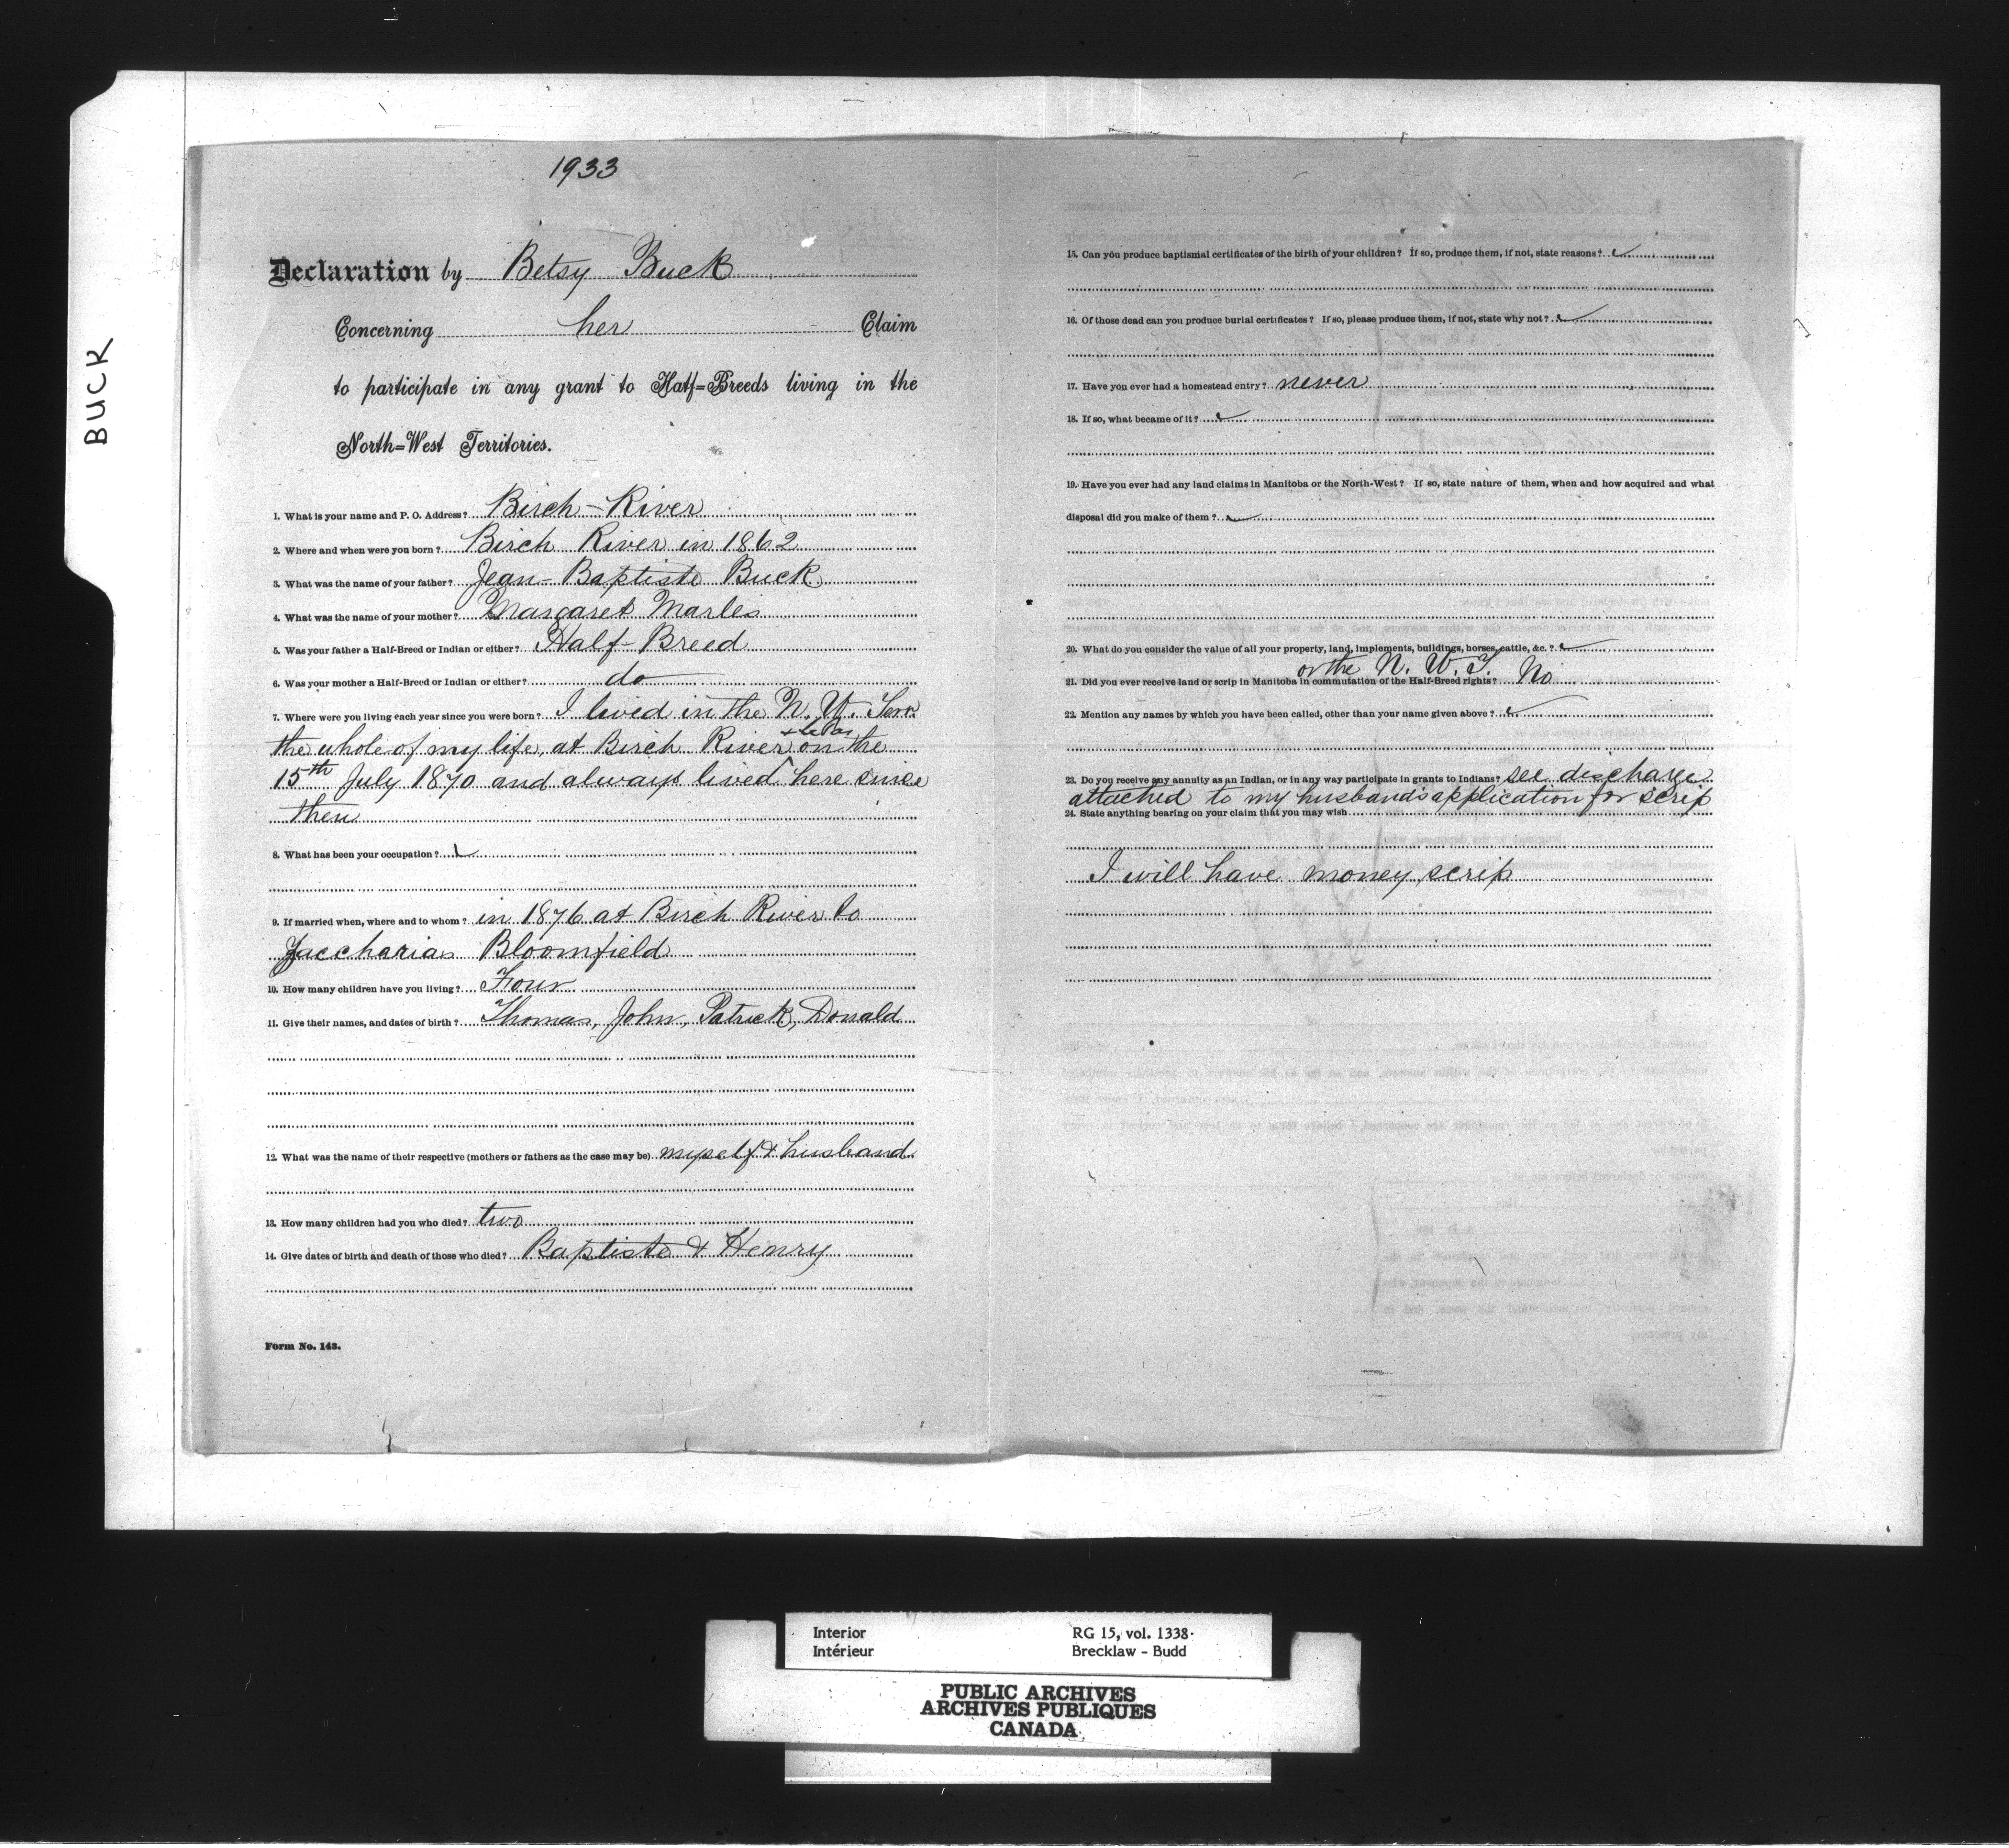 BUCK
1933
Declaration by Betsy Buck
Concerning her Claim
to participate in any grant to Half=Breeds living in the
North=West Territories.
1. What is your name and P. O. Address? Birch-River
2. Where and when were you born? Birch River in 1862
3. What was the name of your father? Jean-Baptiste Buck
4. What was the name of your mother? Margaret Marles
5. Was your father a Half-Breed or Indian or either? Half-Breed
6. Was your mother a Half-Breed or Indian or either? do
7. Where were you living each year since you were born? I lived in the N. W. Terr.
the whole of my life, at Birch River on the
15th July 1870 and always lived here since
then
8. What has been your occupation?
9. If married when, where and to whom? in 1876 at Birch River to
Zaccharias Bloomfield
10. How many children have you living? Four
11. Give their names, and dates of birth? Thomas, John, Patrick, Donald
12. What was the name of their respective (mothers or fathers as the case may be) myself & husband
13. How many children had you who died? two
14. Give dates of birth and death of those who died? Baptiste & Henry
Form No. 143.
15. Can you produce baptismal certificates of the birth of your children? If so, produce them, if not, state reasons?
16. Of those dead can you produce burial certificates? If so, please produce them, if not, state why not?
17. Have you ever had a homestead entry? never
18. If so, what became of it?
19. Have you ever had any land claims in Manitoba or the North-West? If so, state nature of them, when and how acquired and what
disposal did you make of them?
20. What do you consider the value of all your property, land, implements, buildings, horses, cattle, &c.?
or the N. W. T.
21. Did you ever receive land or scrip in Manitoba in commutation of the Half-Breed rights? No
22. Mention any names by which you have been called, other than your name given above?
23. Do you receive any annuity as an Indian, or in any way participate in grants to Indians? see discharge
attached to my husband's application for scrip
24. State anything bearing on your claim that you may wish
I will have money scrip
Interior
Intérieur
RG 15, vol. 1338
Brecklaw - Budd
PUBLIC ARCHIVES
ARCHIVES PUBLIQUES
CANADA